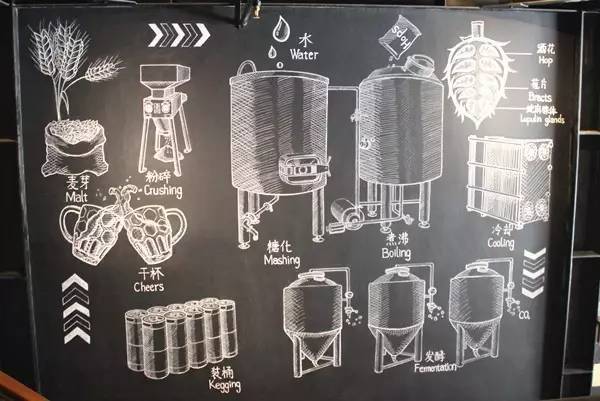 水
Water
Hops
酒花
Hop
苞片
Bracts
蛇麻腺体
Lupulin glands
麦芽
Malt
粉碎
Crushing
糖化
Mashing
煮沸
Boiling
冷却
Cooling
干杯
Cheers
CO₂
装桶
Kegging
发酵
Fermentation